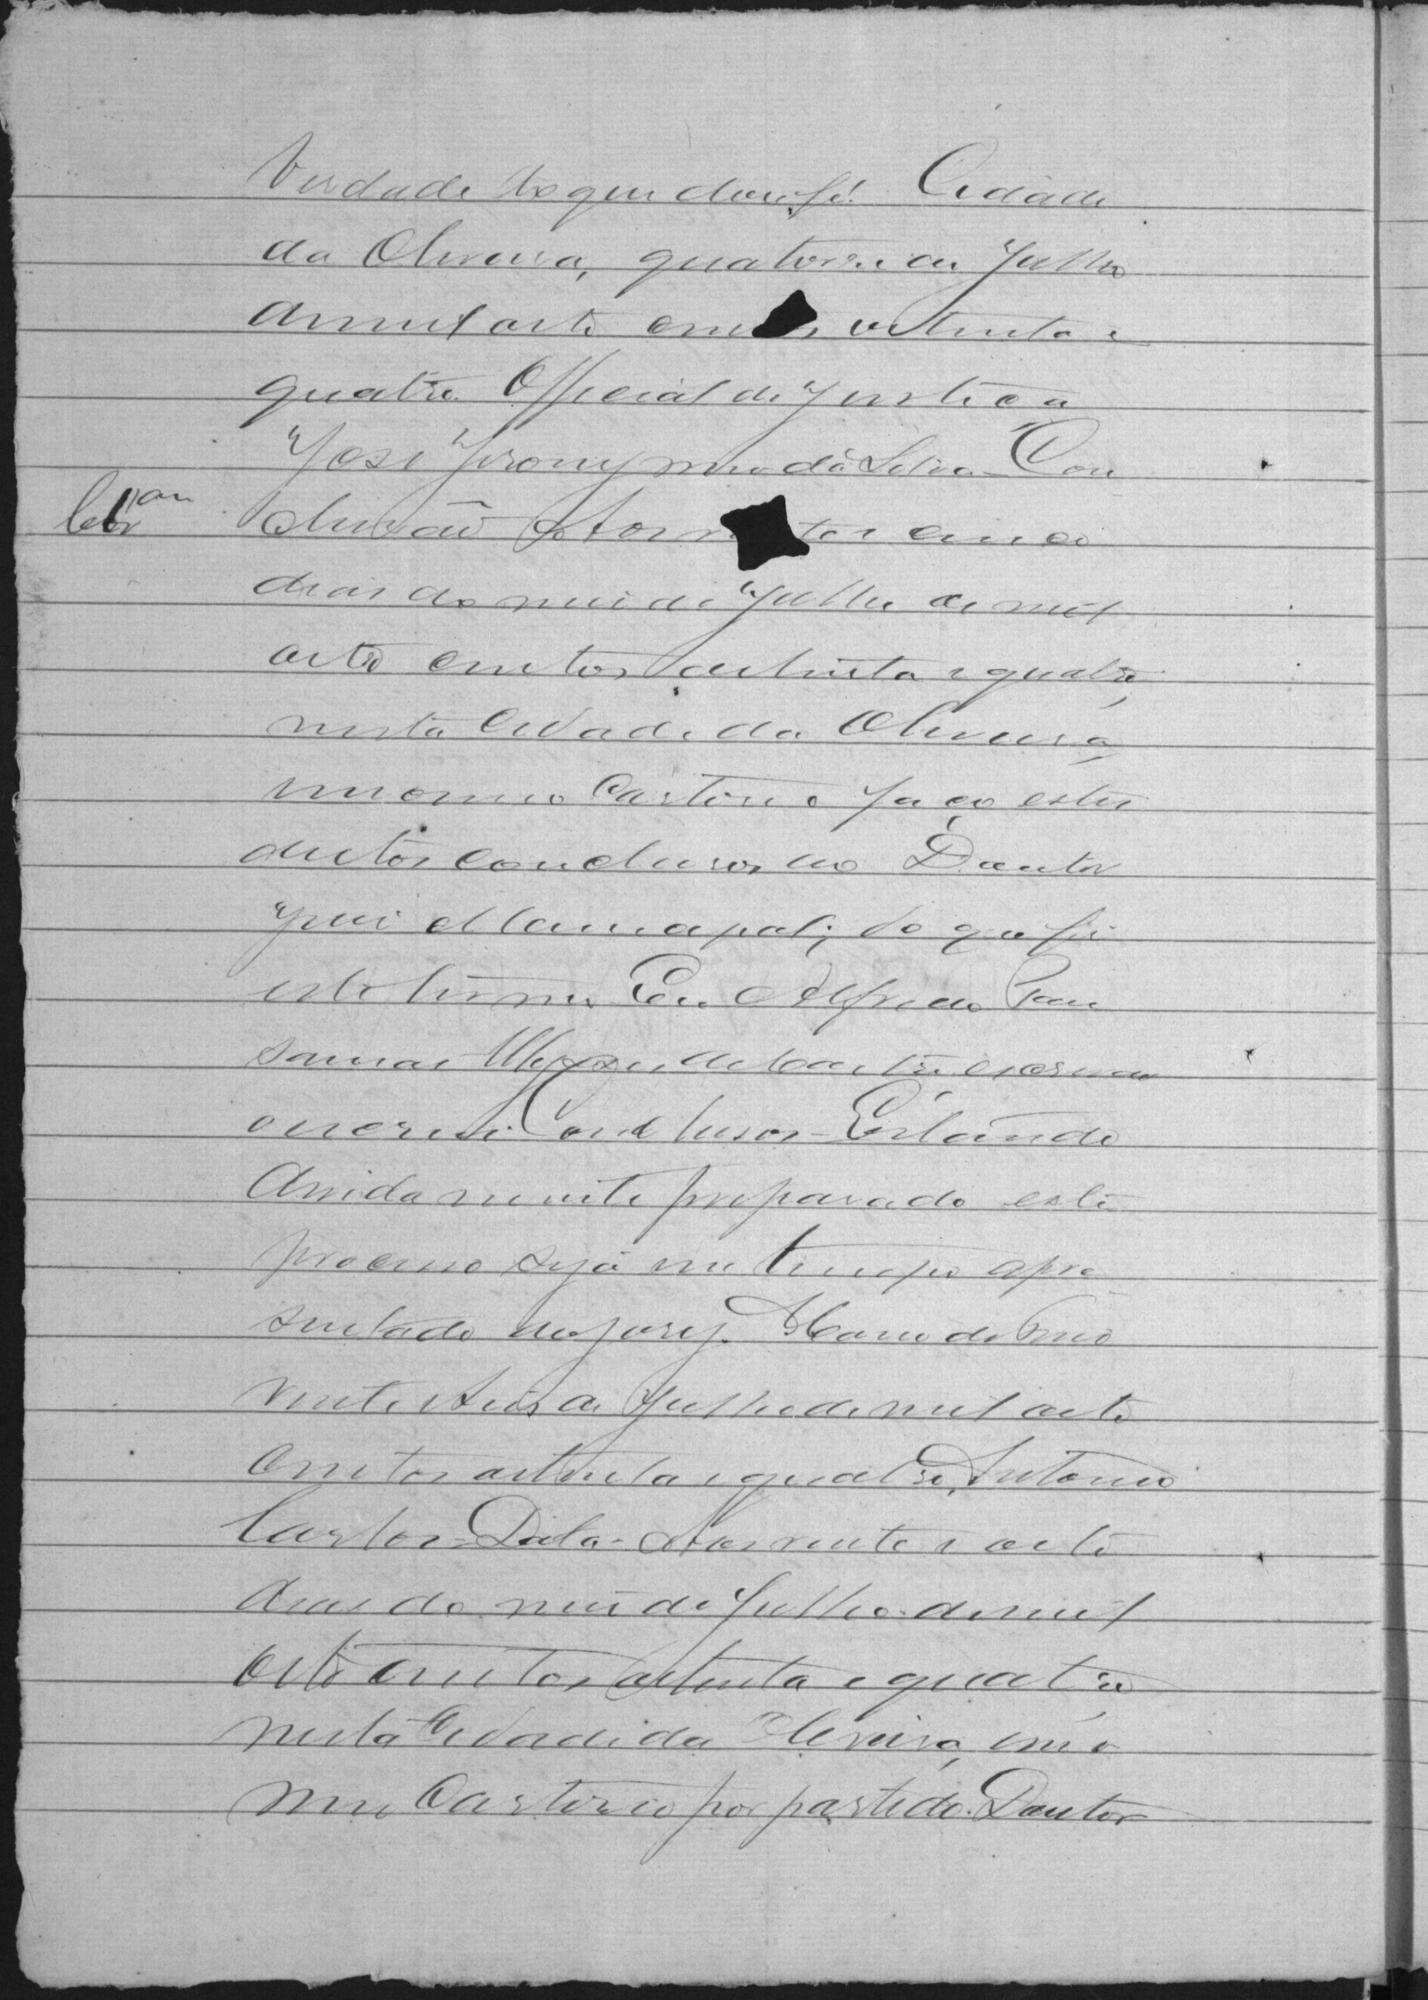 Verdade do que dou fé. Cidade
da Oliveira, quatorse de Julho
de mil oito cen oitenta e
quatro. Official de Justiça
José Jeronymo da Silva. Con
Clusão Aos e cinco
dias do mez de Julho de mil
oito centos oitenta e quatro,
nesta Cidade da Oliveira,
em o meu Cartorio faço estes
autos conclusos ao Doutor
Juiz Municipal; do que fiz
este termo. Eu Alfredo
de Castro escrivão
o escrevi. Conclusos. Estando
devidamente preparado este
processo seja em tempo apre
sentado ao jury.
vinte e seis de Julho de mil oito
centos oitenta e quatro. Antonio
Carlos. Data. Aos vinte e oito
dias do mez de Julho de mil
oito centos oitenta e quatro
nesta Cidade da Oliveira, em o
meu Cartorio por parte do Doutor